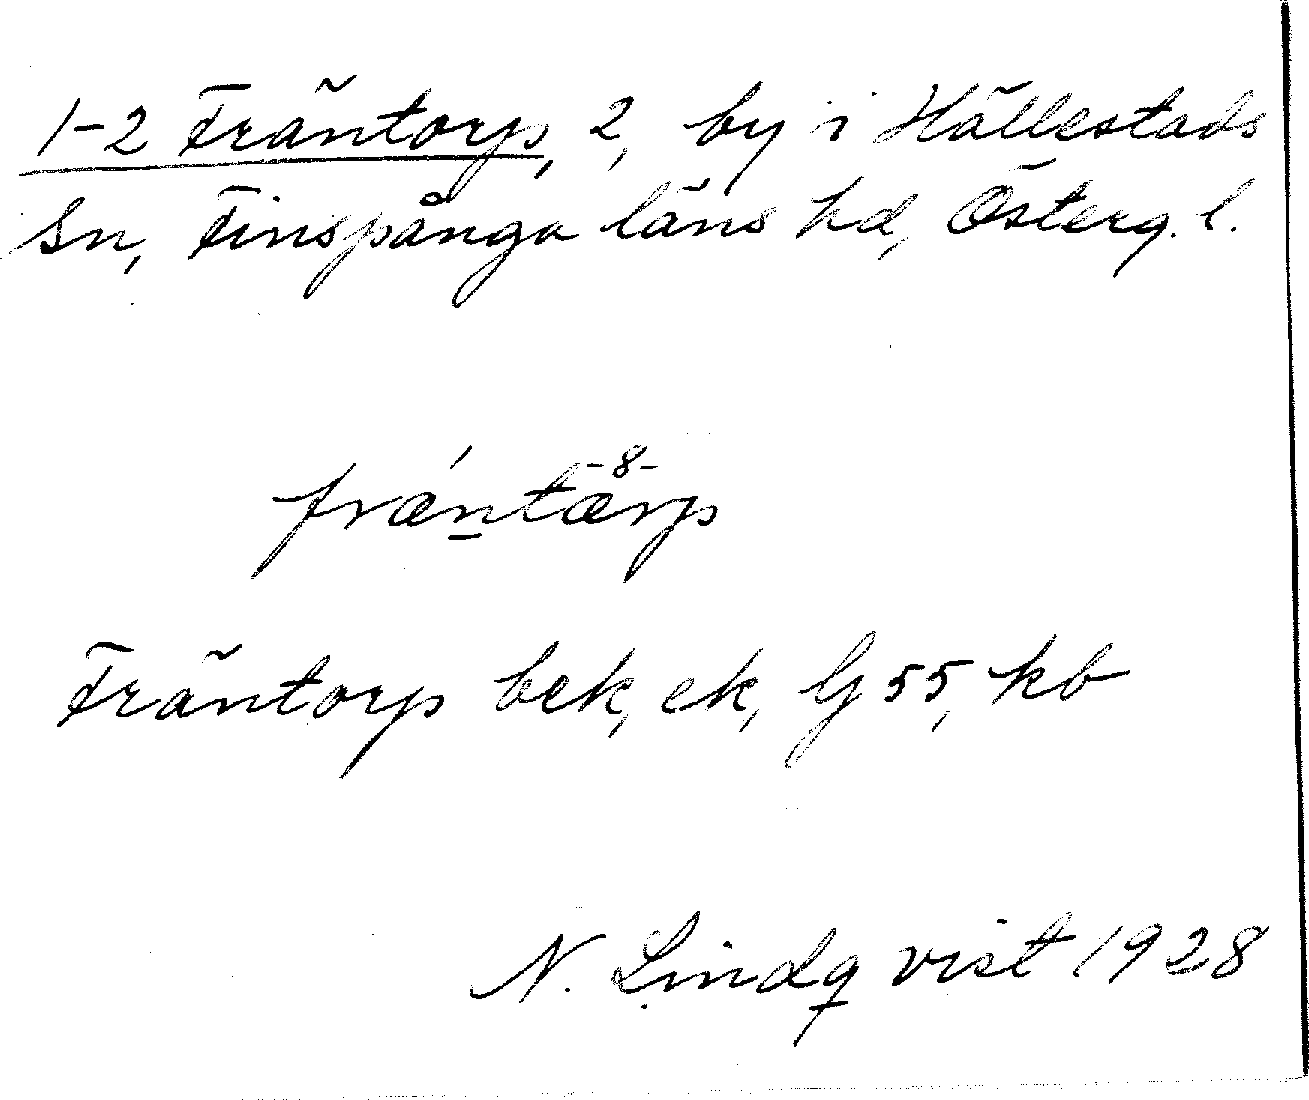 1-2 Fräntorp, 2, by i Hällestads
Sn, Finspånga läns hd, Österg. l.
-8-
frǽn̲tærp
Fräntorp bek, ek, Gj 55, kb
N. Lindqvist 1928